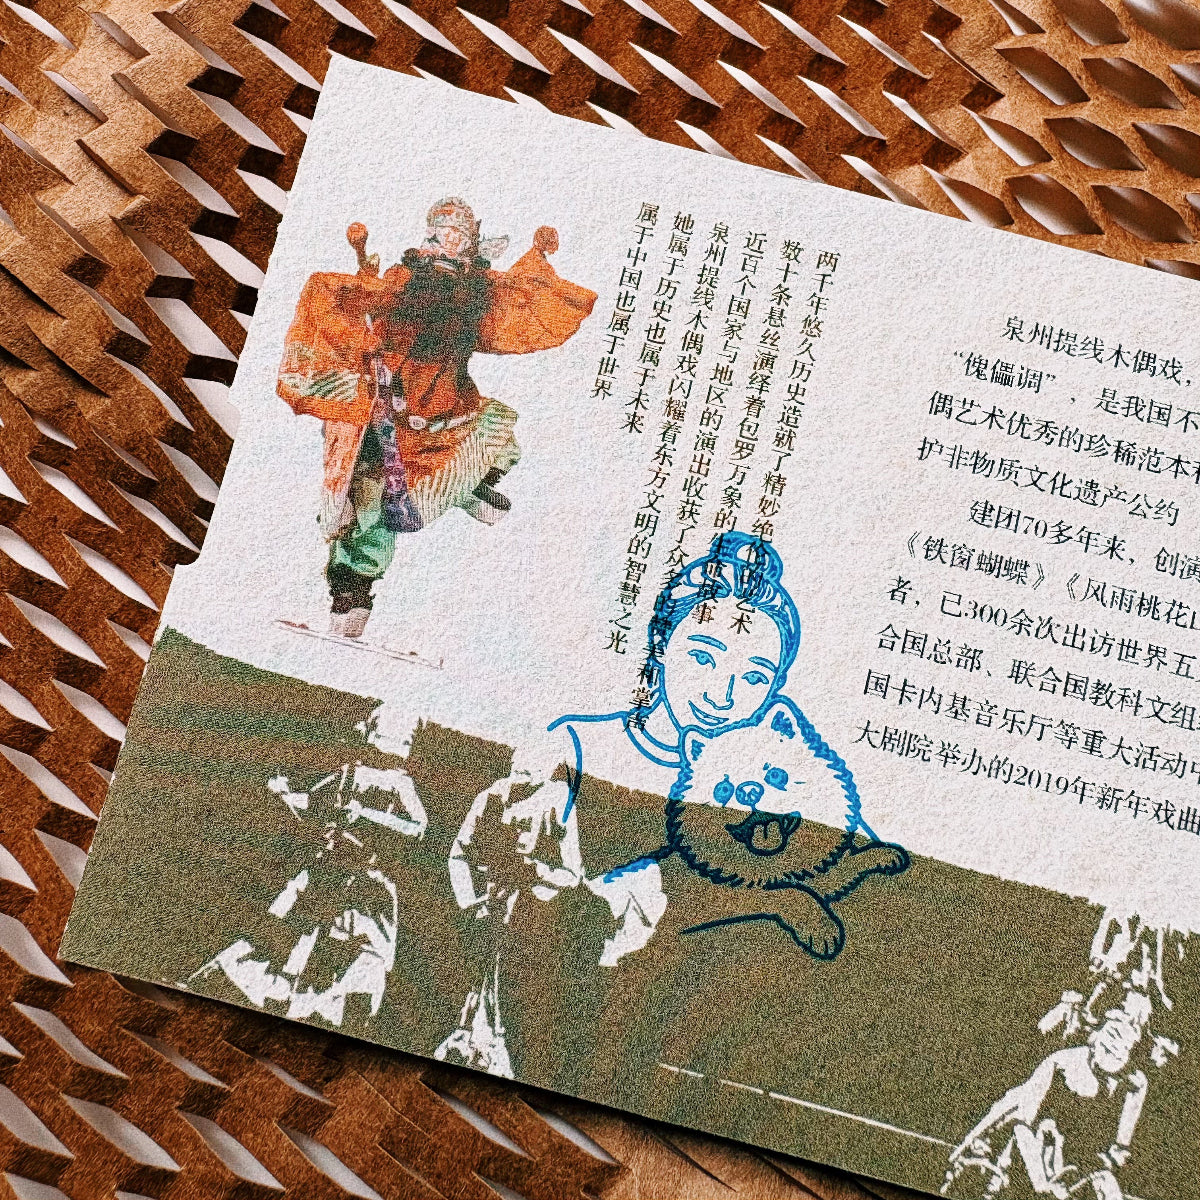 两千年悠久历史造就了精妙绝伦的艺术
数十条悬丝演绎着包罗万象的生动故事
近百个国家与地区的演出收获了众多的赞美和掌声
泉州提线木偶戏闪耀着东方文明的智慧之光
她属于历史也属于未来
属于中国也属于世界
泉州提线木偶戏，
“傀儡调”，是我国不
偶艺术优秀的珍稀范本和
护非物质文化遗产公约
建团70多年来，创演
《铁窗蝴蝶》《风雨桃花
者，已300余次出访世界五
合国总部、联合国教科文组
国卡内基音乐厅等重大活动
大剧院举办的2019年新年戏曲